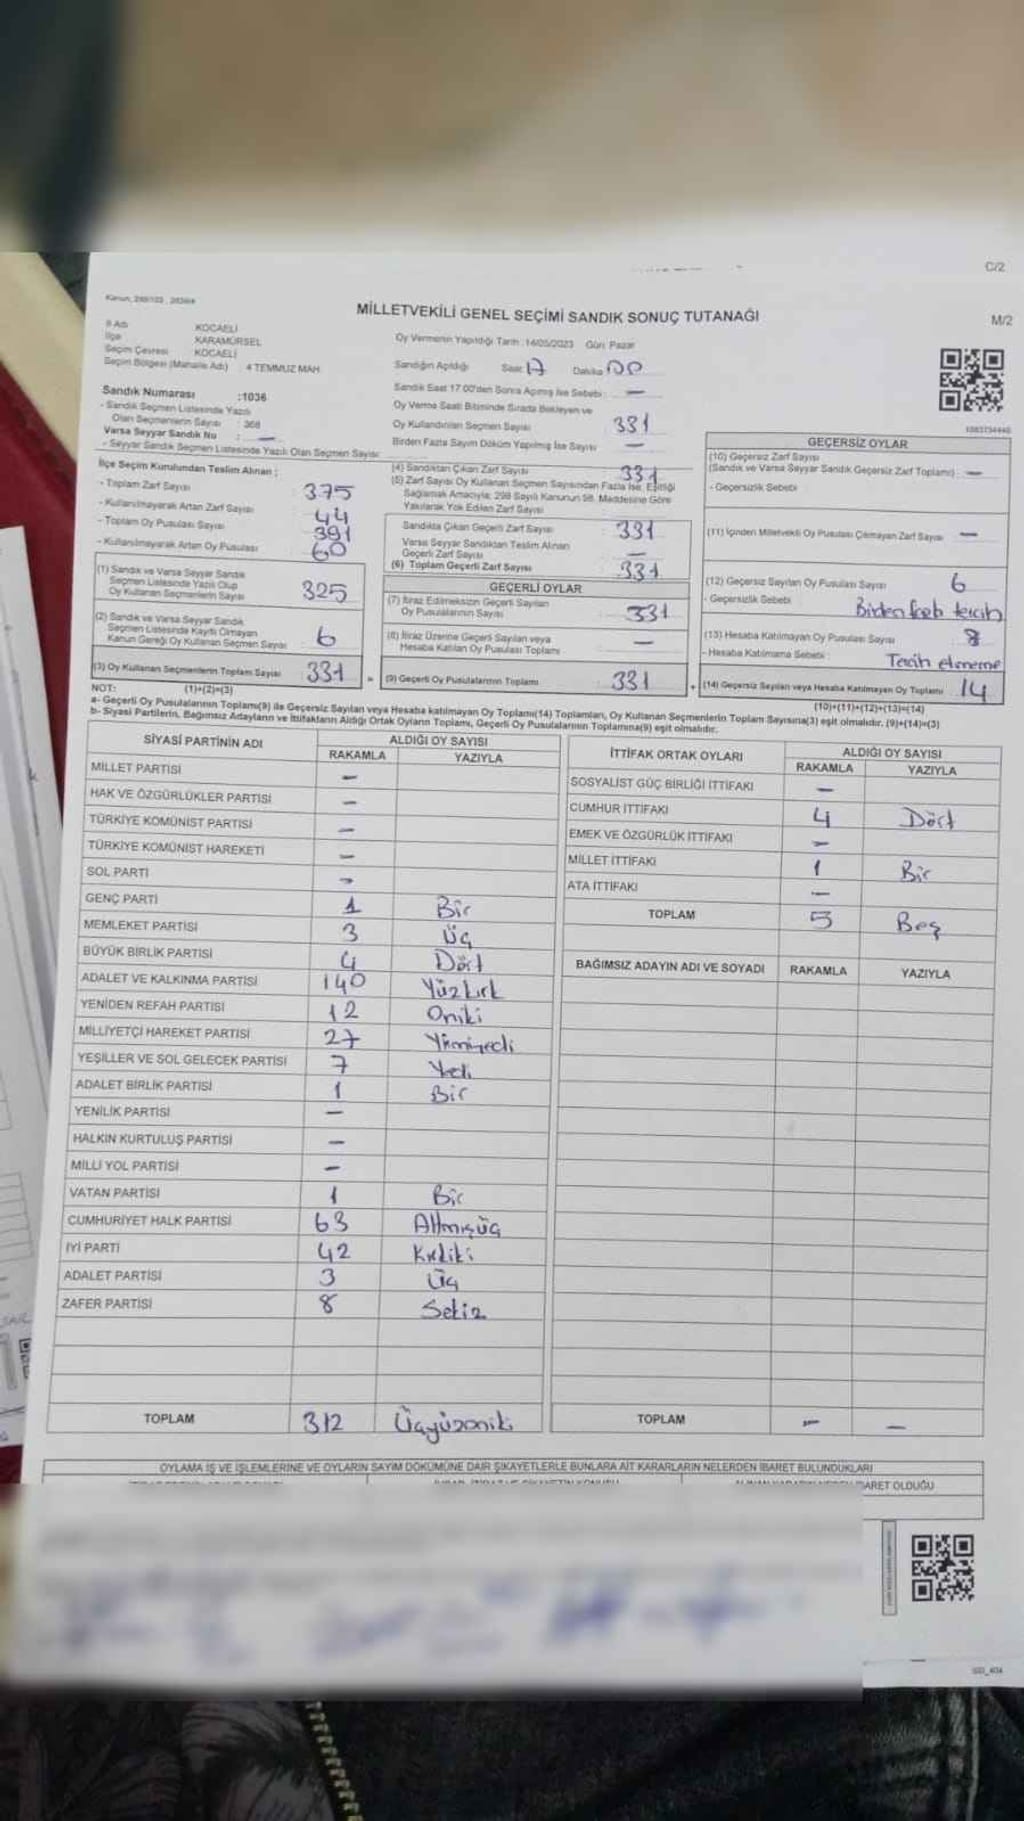 C/2
Kanun, 298/103 , 2839/4
MİLLETVEKİLİ GENEL SEÇİMİ SANDIK SONUÇ TUTANAĞI
M/2
İl Adı KOCAELİ
İlçe KARAMÜRSEL
Seçim Çevresi KOCAELİ
Seçim Bölgesi (Mahalle Adı) 4 TEMMUZ MAH.
Sandık Numarası :1036
- Sandık Seçmen Listesinde Yazılı
Olan Seçmenlerin Sayısı : 368
Varsa Seyyar Sandık No : —
- Seyyar Sandık Seçmen Listesinde Yazılı Olan Seçmen Sayısı:
Oy Vermenin Yapıldığı Tarih :14/05/2023 Gün: Pazar
Sandığın Açıldığı Saat 17 Dakika 00
Sandık Saat 17.00'den Sonra Açılmış İse Sebebi: —
Oy Verme Saati Bitiminde Sırada Bekleyen ve
Oy Kullandırılan Seçmen Sayısı 331
Birden Fazla Sayım Döküm Yapılmış İse Sayısı —
İlçe Seçim Kurulundan Teslim Alınan ;
- Toplam Zarf Sayısı 375
- Kullanılmayarak Artan Zarf Sayısı 44
- Toplam Oy Pusulası Sayısı 391
- Kullanılmayarak Artan Oy Pusulası 60
(1) Sandık ve Varsa Seyyar Sandık
Seçmen Listesinde Yazılı Olup
Oy Kullanan Seçmenlerin Sayısı 325
(2) Sandık ve Varsa Seyyar Sandık
Seçmen Listesinde Kayıtlı Olmayan
Kanun Gereği Oy Kullanan Seçmen Sayısı 6
(3) Oy Kullanan Seçmenlerin Toplam Sayısı 331 =
(4) Sandıktan Çıkan Zarf Sayısı 331
(5) Zarf Sayısı Oy Kullanan Seçmen Sayısından Fazla İse, Eşitliği
Sağlamak Amacıyla; 298 Sayılı Kanunun 98. Maddesine Göre
Yakılarak Yok Edilen Zarf Sayısı
Sandıkta Çıkan Geçerli Zarf Sayısı 331
Varsa Seyyar Sandıktan Teslim Alınan
Geçerli Zarf Sayısı —
(6) Toplam Geçerli Zarf Sayısı 331
GEÇERLİ OYLAR
(7) İtiraz Edilmeksizin Geçerli Sayılan
Oy Pusulalarının Sayısı 331
(8) İtiraz Üzerine Geçerli Sayılan veya
Hesaba Katılan Oy Pusulası Toplamı —
(9) Geçerli Oy Pusulalarının Toplamı 331 +
GEÇERSİZ OYLAR
(10) Geçersiz Zarf Sayısı
(Sandık ve Varsa Seyyar Sandık Geçersiz Zarf Toplamı) —
- Geçersizlik Sebebi
(11) İçinden Milletvekili Oy Pusulası Çıkmayan Zarf Sayısı —
(12) Geçersiz Sayılan Oy Pusulası Sayısı 6
- Geçersizlik Sebebi Birden tercih
(13) Hesaba Katılmayan Oy Pusulası Sayısı 8
- Hesaba Katılmama Sebebi : Tercih etmeme
(14) Geçersiz Sayılan veya Hesaba Katılmayan Oy Toplamı 14
NOT: (1)+(2)=(3) (10)+(11)+(12)+(13)=(14)
a- Geçerli Oy Pusulalarının Toplamı(9) ile Geçersiz Sayılan veya Hesaba katılmayan Oy Toplamı(14) Toplamları, Oy Kullanan Seçmenlerin Toplam Sayısına(3) eşit olmalıdır. (9)+(14)=(3)
b- Siyasi Partilerin, Bağımsız Adayların ve İttifakların Aldığı Ortak Oyların Toplamı, Geçerli Oy Pusulalarının Toplamına(9) eşit olmalıdır.
SİYASİ PARTİNİN ADI ALDIĞI OY SAYISI
RAKAMLA YAZIYLA
MİLLET PARTİSİ —
HAK VE ÖZGÜRLÜKLER PARTİSİ —
TÜRKİYE KOMÜNİST PARTİSİ —
TÜRKİYE KOMÜNİST HAREKETİ —
SOL PARTİ —
GENÇ PARTİ 1 Bir
MEMLEKET PARTİSİ 3 Üç
BÜYÜK BİRLİK PARTİSİ 4 Dört
ADALET VE KALKINMA PARTİSİ 140 Yüzkırk
YENİDEN REFAH PARTİSİ 12 Oniki
MİLLİYETÇİ HAREKET PARTİSİ 27 Yirmiyedi
YEŞİLLER VE SOL GELECEK PARTİSİ 7 Yedi
ADALET BİRLİK PARTİSİ 1 Bir
YENİLİK PARTİSİ —
HALKIN KURTULUŞ PARTİSİ —
MİLLİ YOL PARTİSİ —
VATAN PARTİSİ 1 Bir
CUMHURİYET HALK PARTİSİ 63 Altmışüç
İYİ PARTİ 42 Kırkiki
ADALET PARTİSİ 3 Üç
ZAFER PARTİSİ 8 Sekiz
TOPLAM 312 Üçyüzoniki
İTTİFAK ORTAK OYLARI ALDIĞI OY SAYISI
RAKAMLA YAZIYLA
SOSYALİST GÜÇ BİRLİĞİ İTTİFAKI —
CUMHUR İTTİFAKI 4 Dört
EMEK VE ÖZGÜRLÜK İTTİFAKI —
MİLLET İTTİFAKI 1 Bir
ATA İTTİFAKI —
TOPLAM 5 Beş
BAĞIMSIZ ADAYIN ADI VE SOYADI RAKAMLA YAZIYLA
TOPLAM — —
OYLAMA İŞ VE İŞLEMLERİNE VE OYLARIN SAYIM DÖKÜMÜNE DAİR ŞİKAYETLERLE BUNLARA AİT KARARLARIN NELERDEN İBARET BULUNDUKLARI
OLDUĞU